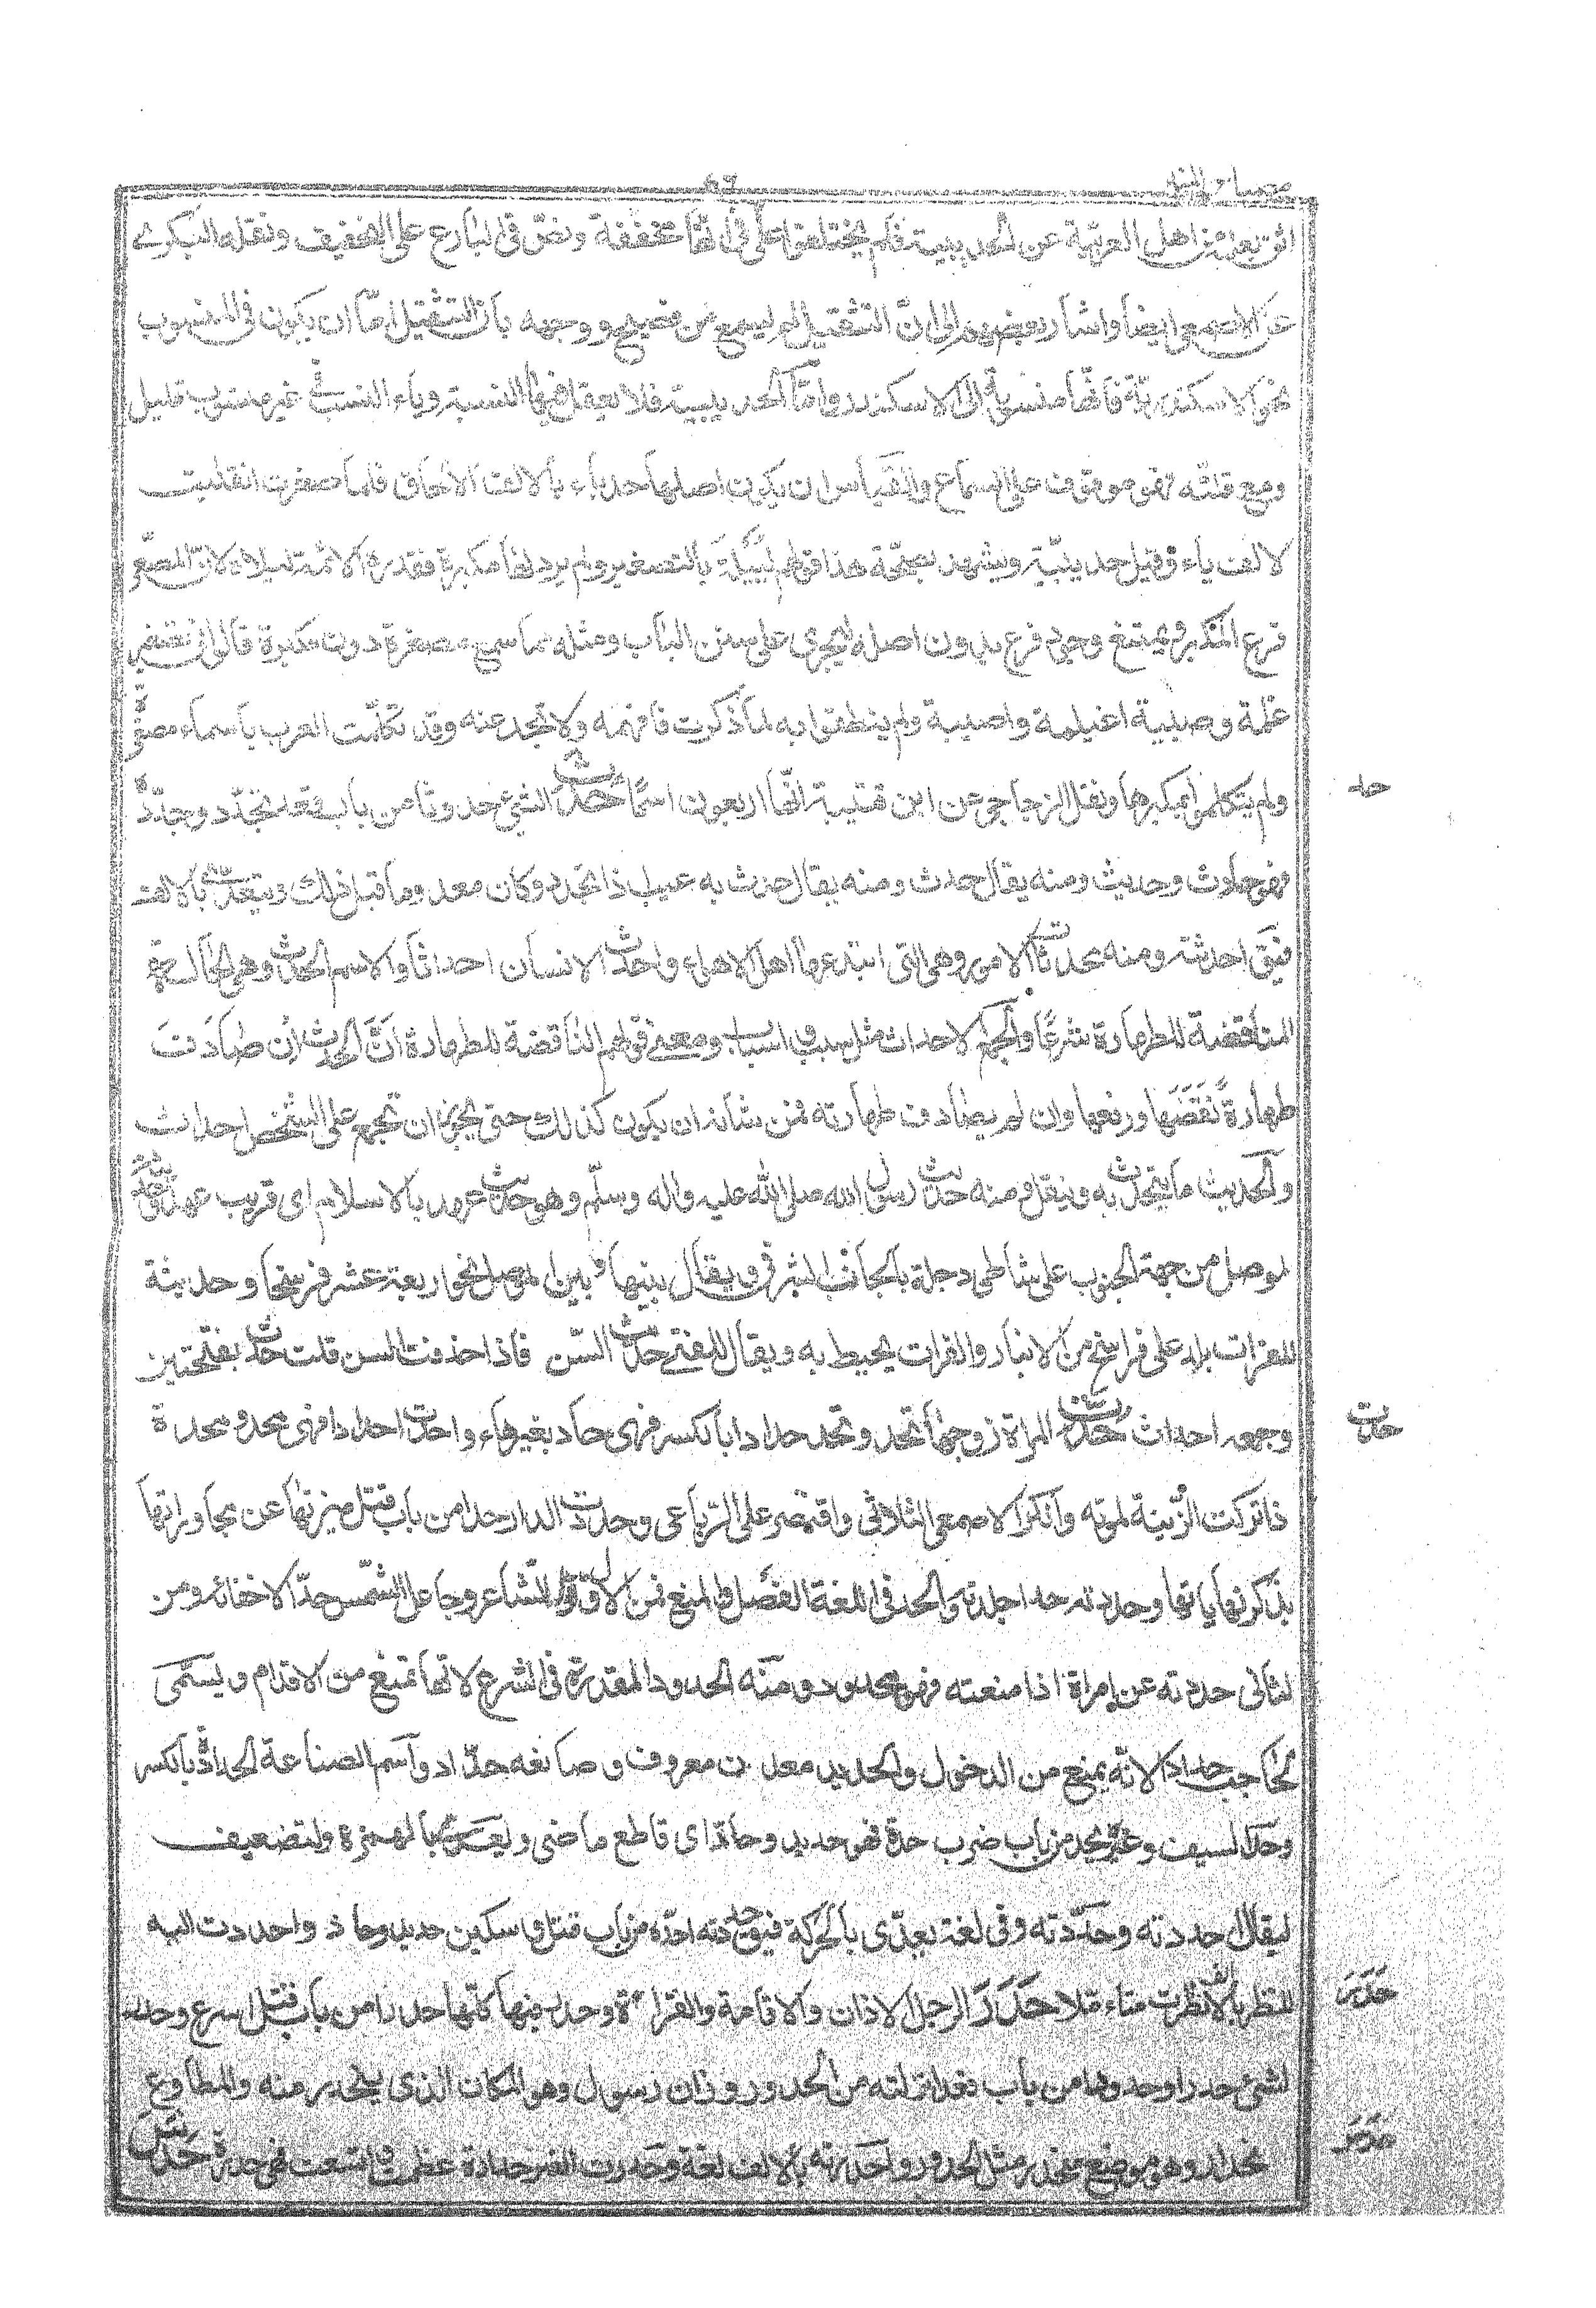 مصباح المنير
اثق بعلمه من اهل العربية عن الحديبية فلم يختلفوا على في انها مخففة ونص في البارع على التخفيف ونقله البكري
عن الاصمعي ايضا واشار بعضهم الى ان التثقيل لم يسمع من فصيح ووجهه بان التثقيل اما ان يكون في المنسوب
نحو الاسكندرية فانها منسوبة الى الاسكندر واما الحديبية فلا يعقل فيها النسبة وياء النسب في غير منسوب قليل
ومع قلته فهو موقوف على السماع والقياس ان يكون اصلها حدباء بالالف الالحاق فلما صغرت انقلبت
الالف ياء وقيل حديبية ويشهد بصحة هذا قولهم لييلة بالتصغير ولم يرد لها مكبرة فقدره الائمة ليلاة لان المصغر
فرع المكبر ويمتنع وجود فرع بدون اصله ليجري على سنن الباب ومثله مما سمع مصغرة دون مكبرة قالوا في تصغير
غلمة وصبية اغيلمة واصيبية ولم ينطقوا به لما ذكرت فافهمه ولا تحد عنه وقد تكلمت العرب باسماء مصغرة
ولم يتكلموا بمكبرها ونقل الزجاجي عن ابن قتيبة انها اربعون اسما حدث الشيء حدوثا من باب قعد تجدد وجدده
حد
فهو حادث وحديث ومنه يقال حدث ومنه يقال حدث به عيب اذا تجدد وكان معدوما قبل ذلك ويتعدى بالالف
فيق احدثته ومنه محدثات الامور وهي التي ابتدعها اهل الاهواء واحدث الانسان احداثا والاسم الحدث وهي الحالة
المناقضة للطهارة شرعا والجمع الاحداث مثل سبب واسباب ومعنى قولهم الناقضة للطهارة ان الحدث ان صادفت
طهارة نقضها ورفعها وان لم يصادف طهارته فمن شانه ان يكون كذلك حتى يجوز ان تجمع على الشخص احداث
والحديث ما يتحدث به وينقل ومنه حديث رسول الله صلى الله عليه واله وسلم وهو حديث عهد بالاسلام اي قريب عهد
الموصل من جهة الجنوب على شاطئ دجلة بالجانب الشرقي ويقال بينها وبين الموصل نحو اربعة عشر فرسخا وحديثة
الفرات بلد على فراسخ من الانبار والفرات يحيط به ويقال للفتى حديث السن فاذا حذفت السن قلت حدث بفتحتين
وجمعه احداث حدت المراة زوجها تحد وتحد حدادا بالكسر فهي حاد بغير هاء واحدت احدادا فهي محد ومحدة
حدت
اذا تركت الزينة لموته وانكر الاصمعي الثلاثي واقتصر على الرباعي وحددت الدار حدا من باب قتل ميزتها عن مجاوراتها
بذكر نهاياتها وحددته حدا جلدته والحد في اللغة الفصل والمنع فمن الاول قول الشاعر وجاعل الشمس حدا لا خفائه ومن
الثاني حددته عن امراة اذا منعته فهو محدود ومنه الحدود المقدرة في الشرع لانها تمنع من الاقدام ويسمى
الحاجب حدادا لانه يمنع من الدخول والحديد معدن معروف وصانعه حداد واسم الصناعة الحدادة بالكسر
وحد السيف وغيره يحد من باب ضرب حدة فهو حديد وحاد اي قاطع ماضي ويعدى بالهمزة والتضعيف
ليقال احددته وحددته وفي لغة يعدى بالحركة فيق حددته احده من باب قتل وسكين حديد وحاد واحددت اليه
النظر بالالف نظرت متاملا حدر الرجل الاذان والاقامة والقراءة وحدر فيها كلها حدرا من باب قتل اسرع وحدر
حدر
الشيء حدرا وحدورا من باب قعد انزلته من الحدور وزان رسول وهو المكان الذي ينحدر منه والمطاوع
انحدار وهو موضع منحدر مثل الحدور واحدرته بالالف لغة وحدرت العين حدارة عظمت واتسعت فهي حدرة حدس
حدس